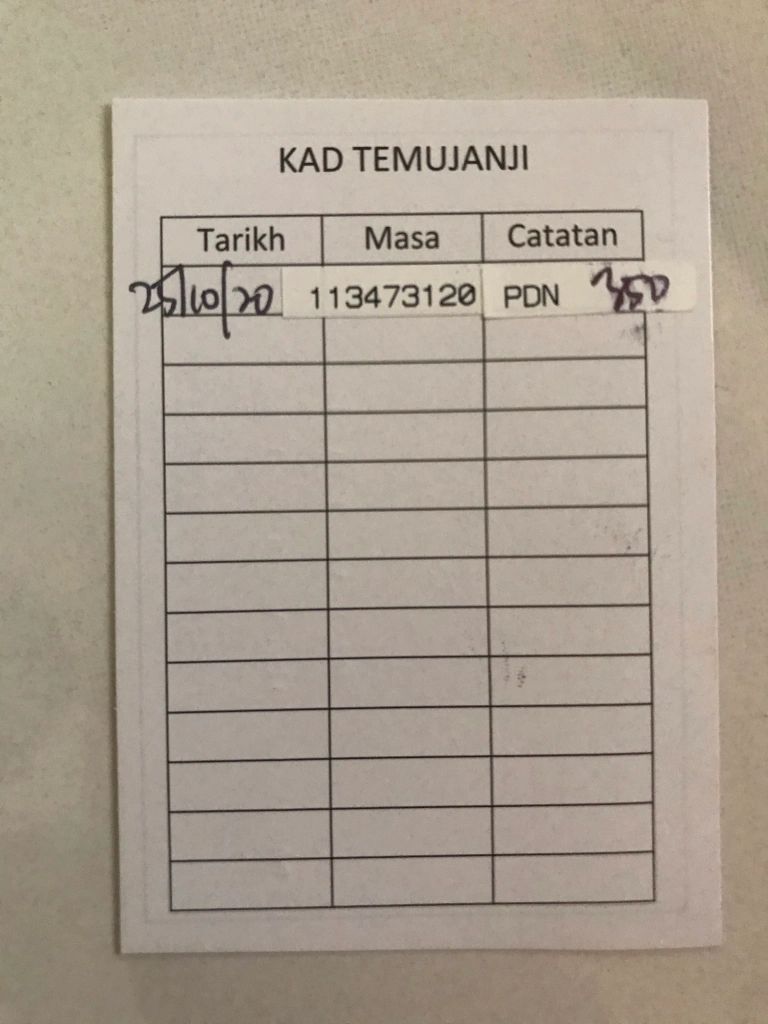 KAD TEMUJANJI
Tarikh Masa Catatan
25/10/20 113473120 PDN 350